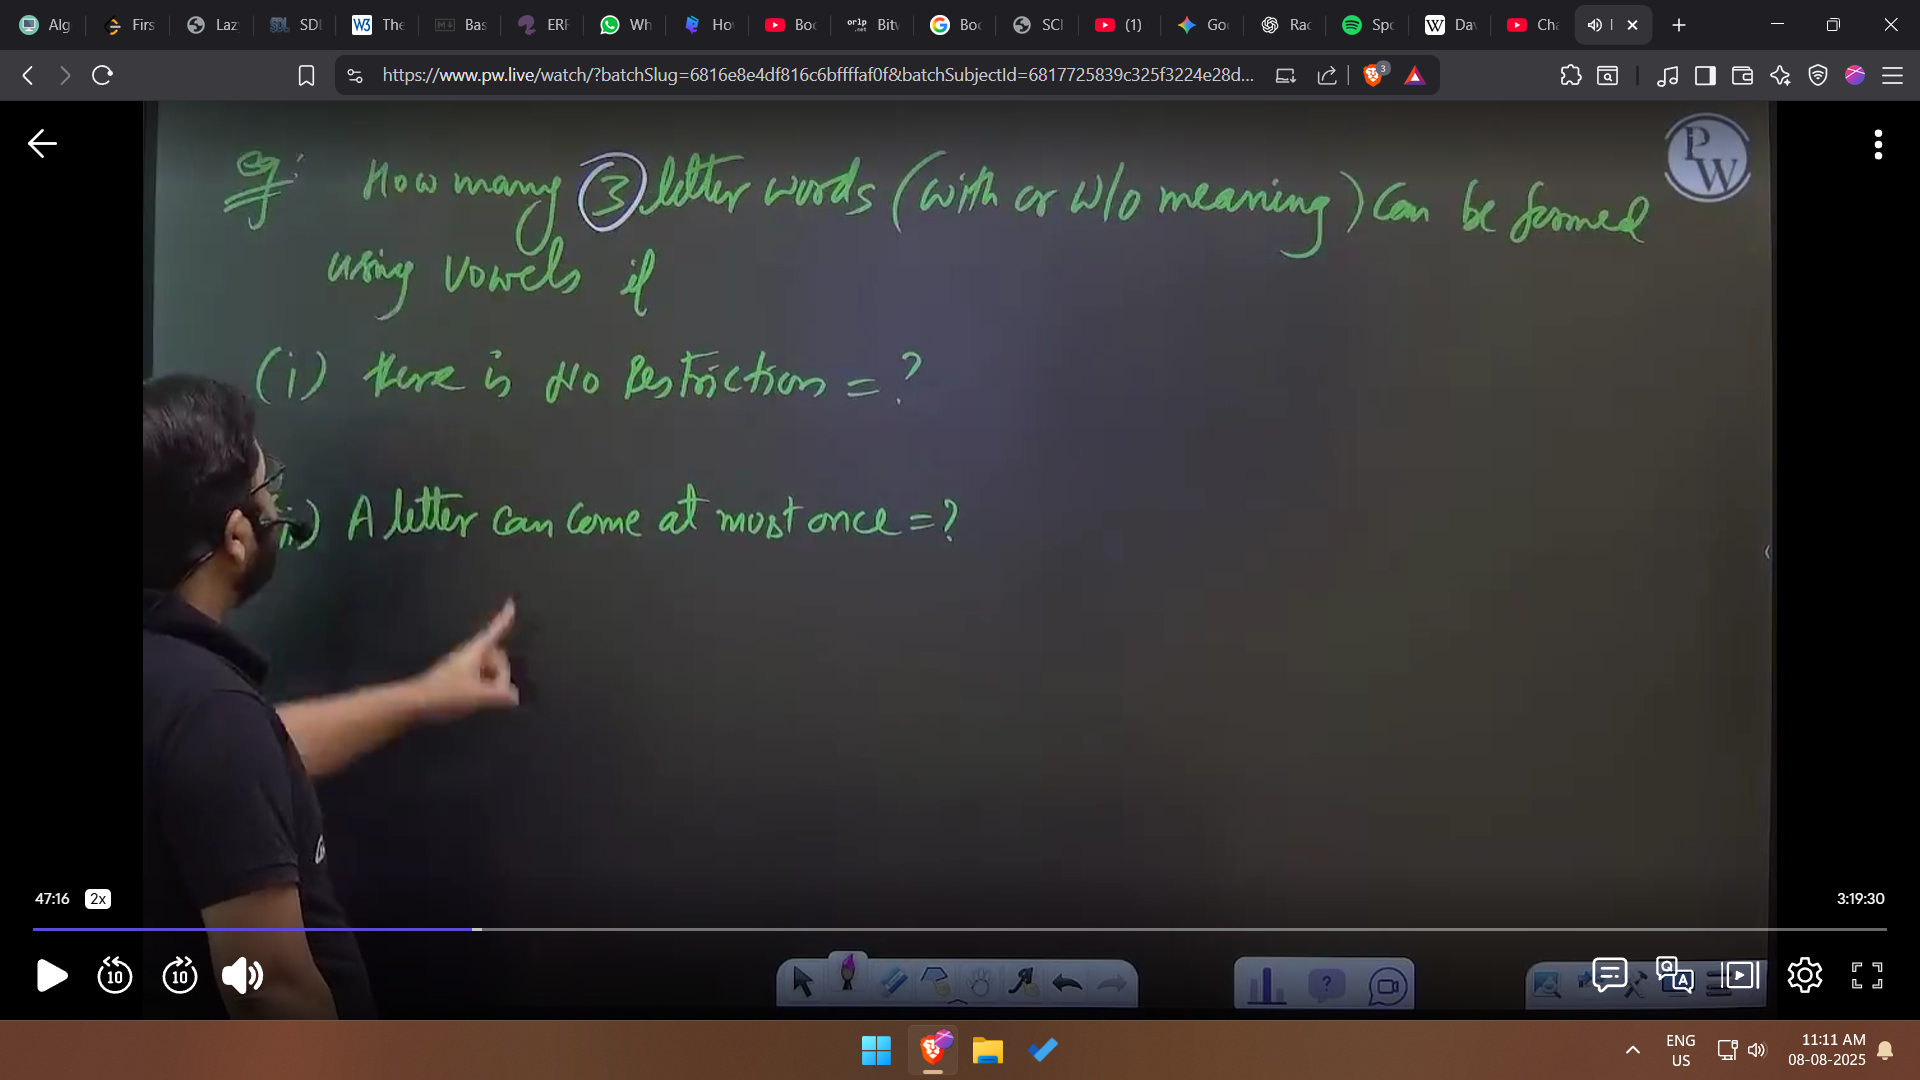 Alg
Firs
Laz
SDI
The
Bas
ERF
Wh
Ho
Boo
Bitv
Boo
SCI
(1)
Goo
Rac
Spo
Dav
Cha
https://www.pw.live/watch/?batchSlug=6816e8e4df816c6bffffaf0f&batchSubjectId=6817725839c325f3224e28d...
3
PW
Eg: How many 3 letter words (with or w/o meaning) can be formed
using vowels if
(i) there is No Restriction = ?
(ii) A letter can come at most once = ?
47:16 2x 3:19:30
10 10
ENG
US
11:11 AM
08-08-2025